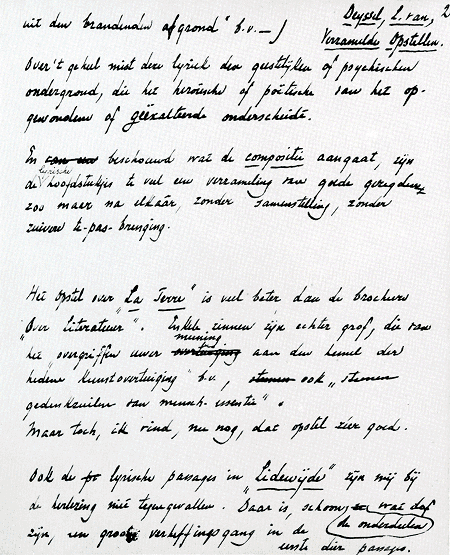 uit den brandenden afgrond" b.v. —)
Deyssel, L. van, 2
Verzamelde Opstellen.
Over 't geheel mist deze lyriek den geestelijken of psychischen
ondergrond, die het heroïsche of poëtische van het op-
gewondene of geëxalteerde onderscheidt.
En beschouwd wat de compositie aangaat, zijn
de lyrische hoofdstukjes te veel een verzameling van goede gezegden,
zoo maar na elkaâr, zonder samenstelling, zonder
zuivere te-pas-brenging.
Het opstel over "La Terre" is veel beter dan de brochure
"Over literatuur". Enkele zinnen zijn echter grof, die van
het "overgriffen uwer meening aan den hemel der
hedene Kunstovertuiging" b.v., ook "steenen
gedenkzuilen van mensch-essentie".
Maar toch, ik vind, nu nog, dat opstel zéér goed.
Ook de lyrische passages in "Lidewijde" zijn mij bij
de herlezing niet tegengevallen. Daar is, schoon wat dof
de onderdeelen
zijn, een groote verheffingsgang in de
eerste dier passages.